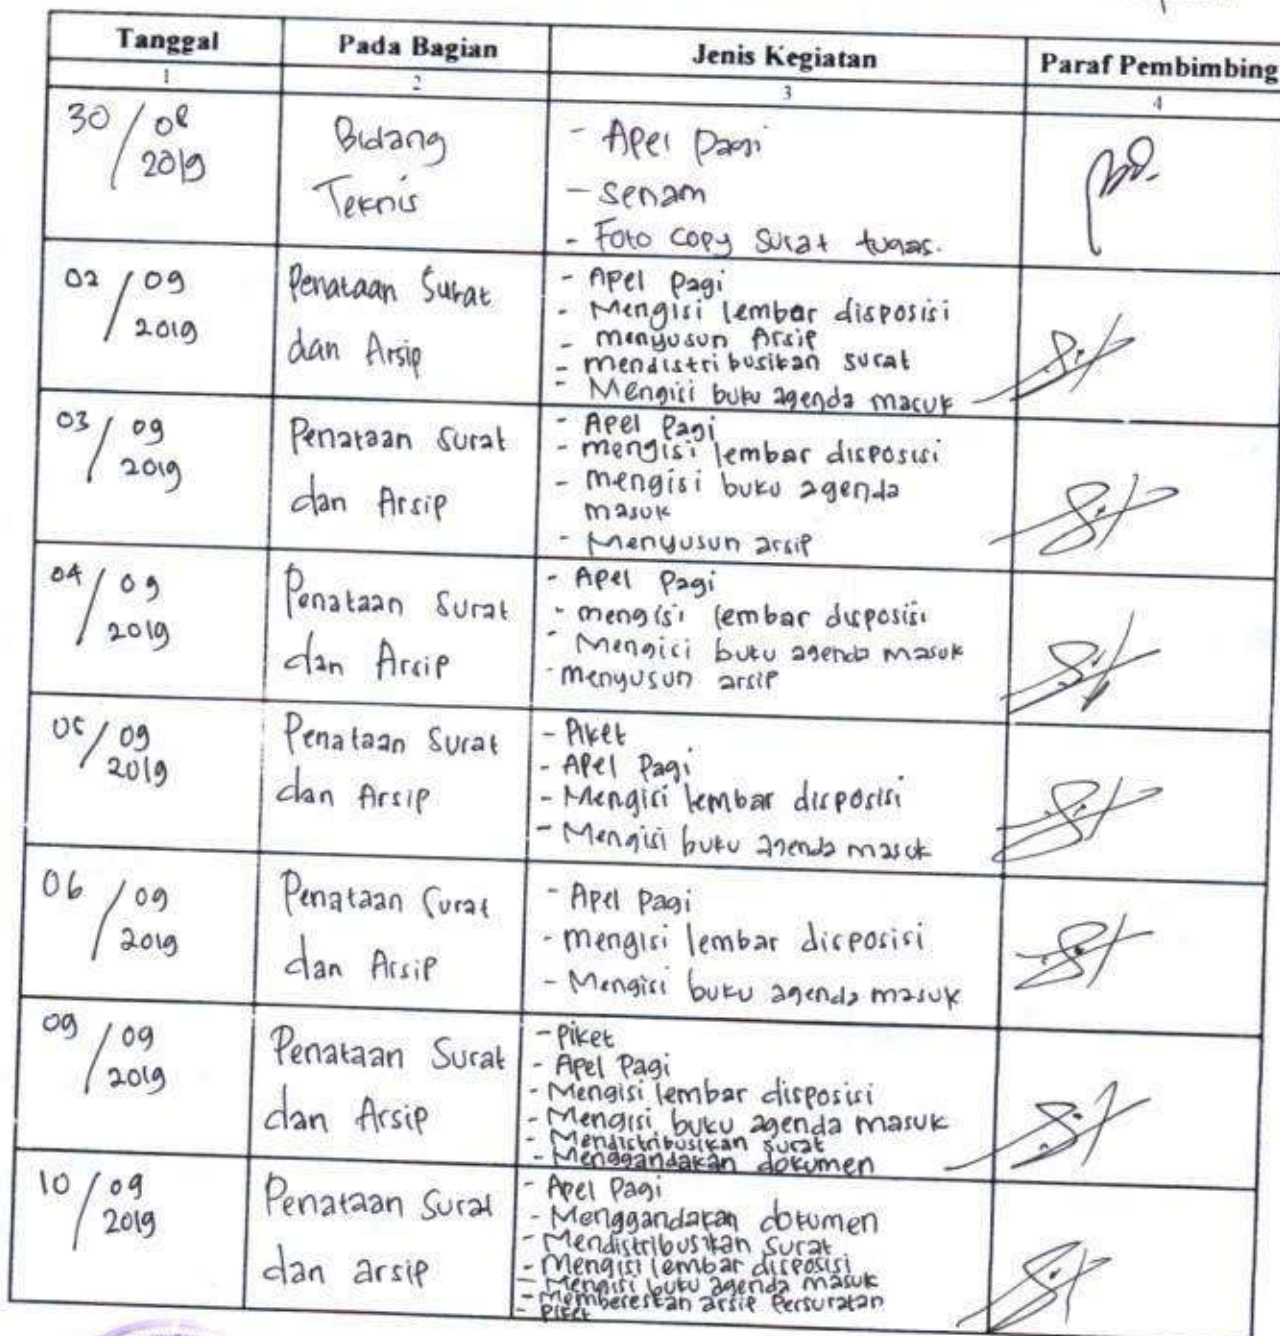 Tanggal Pada Bagian Jenis Kegiatan Paraf Pembimbing
1 2 3 4
30/08 2019
Bidang
Teknis
- Apel Pagi
- Senam
- Foto Copy Surat tugas.
02/09 2019
Penataan Surat
dan Arsip
- Apel Pagi
- Mengisi lembar disposisi
- menyusun Arsip
- mendistribusikan surat
- Mengisi buku agenda masuk
03/09 2019
Penataan Surat
dan Arsip
- Apel Pagi
- mengisi lembar disposisi
- mengisi buku agenda
masuk
- Menyusun arsip
04/09 2019
Penataan Surat
dan Arsip
- Apel Pagi
- mengisi lembar disposisi
- Mengisi buku agenda masuk
- menyusun arsip
05/09 2019
Penataan Surat
dan Arsip
- Piket
- Apel Pagi
- Mengisi lembar disposisi
- Mengisi buku agenda masuk
06/09 2019
Penataan Surat
dan Arsip
- Apel Pagi
- mengisi lembar disposisi
- Mengisi buku agenda masuk
09/09 2019
Penataan Surat
dan Arsip
- Piket
- Apel Pagi
- Mengisi lembar disposisi
- Mengisi buku agenda masuk
- Mendistribusikan surat
- Menggandakan dokumen
10/09 2019
Penataan Surat
dan arsip
- Apel Pagi
- Menggandakan dokumen
- Mendistribusikan Surat
- Mengisi lembar disposisi
- Mengisi buku agenda masuk
- Membereskan arsip Persuratan
- Piket